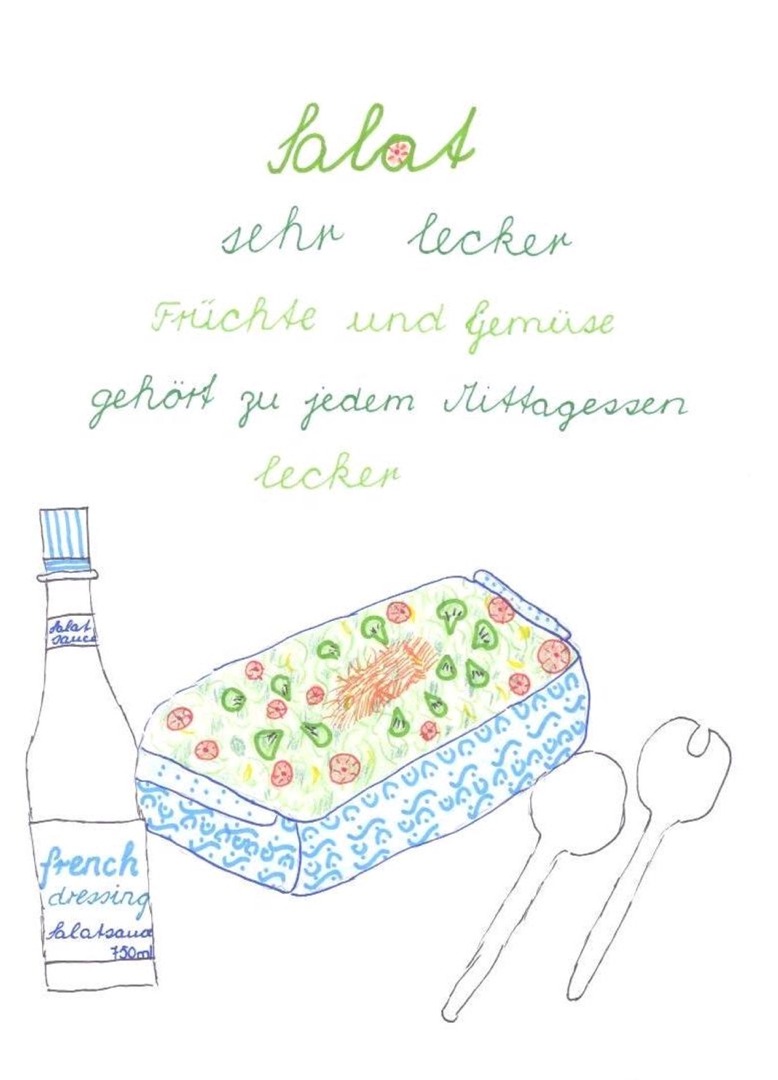 Salat
sehr lecker
Früchte und Gemüse
gehört zu jedem Mittagessen
lecker
Salat
sauce
french
dressing
Salatsauc
750ml